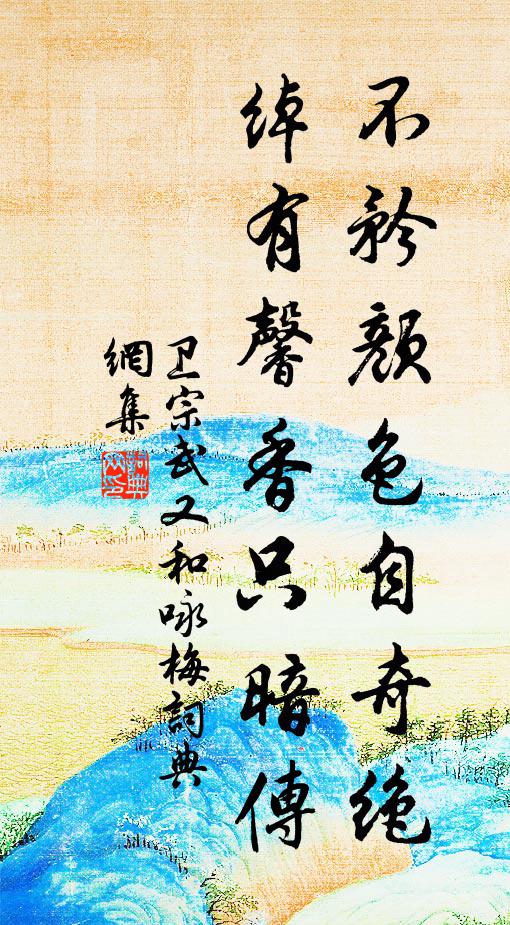 不矜顏色自奇绝
绰有馨香只暗傳
卫宗武又和咏梅詞典
網集